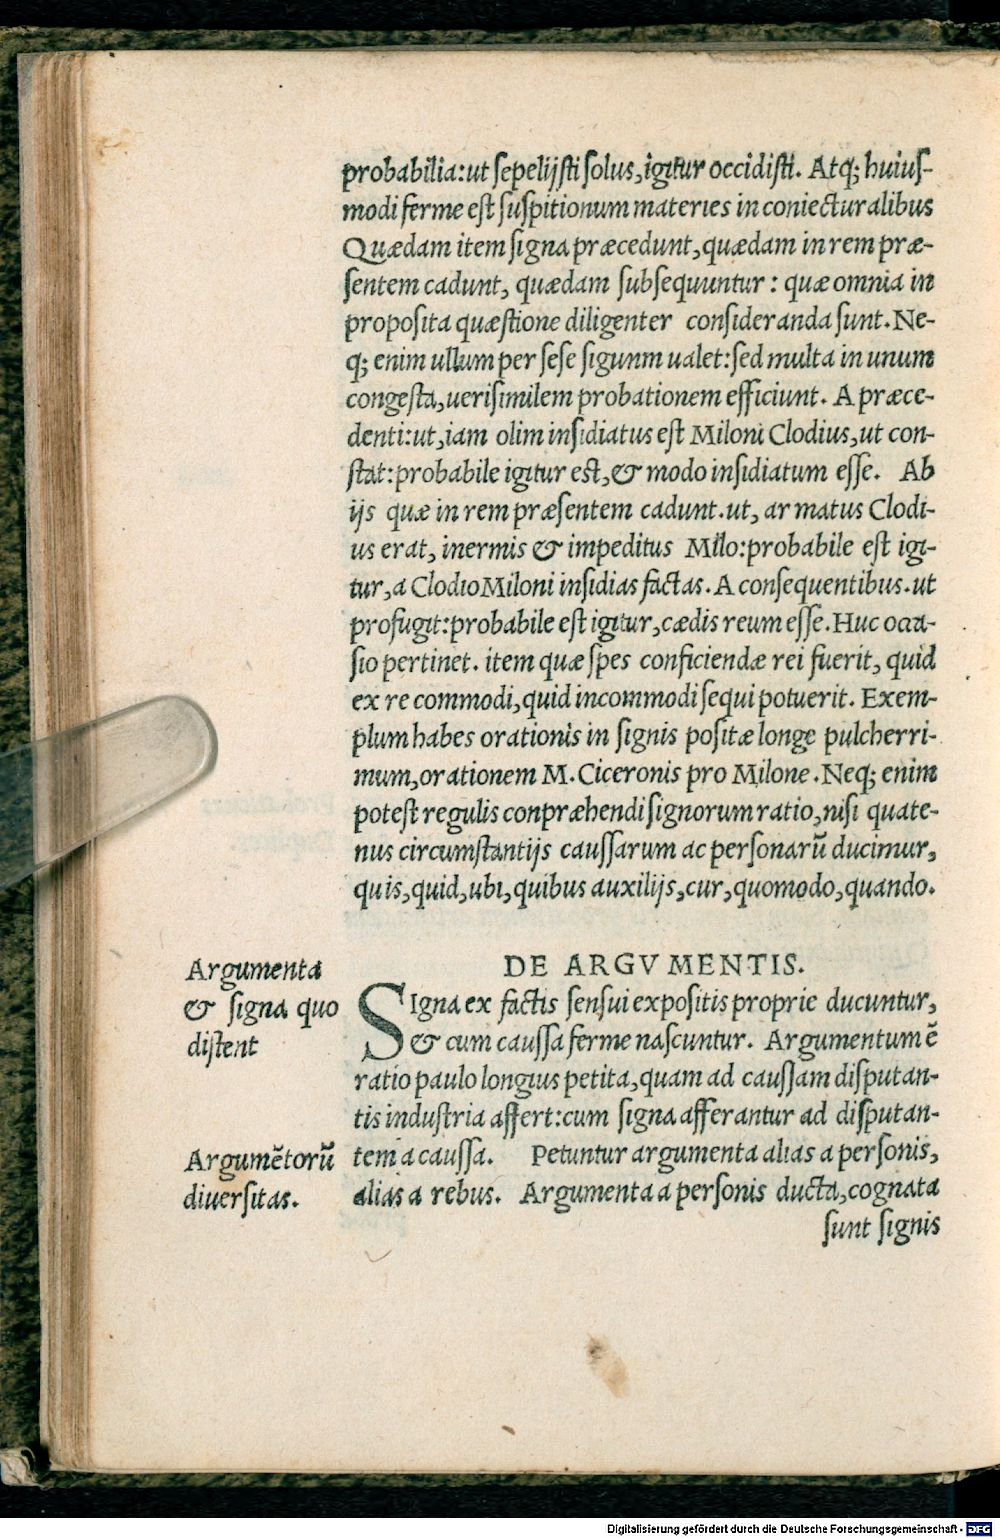 probabilia:ut sepelijsti solus,igitur occidisti. Atq; huius-
modi ferme est suspitionum materies in coniecturalibus
Quædam item signa præcedunt,quædam in rem præ-
sentem cadunt, quædam subsequuntur: quæ omnia in
proposita quæstione diligenter consideranda sunt. Ne-
q; enim ullum per sese sigunm ualet:sed multa in unum
congesta,uerisimilem probationem efficiunt. A præce-
denti:ut,iam olim insidiatus est Miloni Clodius,ut con-
stat:probabile igitur est,& modo insidiatum esse. Ab
ijs quæ in rem præsentem cadunt.ut, armatus Clodi-
us erat, inermis & impeditus Milo:probabile est igi-
tur,a Clodio Miloni insidias factas. A consequentibus.ut
profugit:probabile est igitur,cædis reum esse. Huc occa-
sio pertinet. item quæ spes conficiendæ rei fuerit, quid
ex re commodi,quid incommodi sequi potuerit. Exem-
plum habes orationis in signis positæ longe pulcherri-
mum,orationem M. Ciceronis pro Milone. Neq; enim
potest regulis conpræhendi signorum ratio,nisi quate-
nus circumstantijs caussarum ac personarũ ducimur,
quis,quid,ubi,quibus auxilijs,cur,quomodo,quando.
DE ARGVMENTIS.
Argumenta
& signa quo
distent
SIgna ex factis sensui expositis proprie ducuntur,
& cum caussa ferme nascuntur. Argumentum ẽ
ratio paulo longius petita,quam ad caussam disputan-
tis industria affert:cum signa afferantur ad disputan-
tem a caussa. Petuntur argumenta alias a personis,
alias a rebus. Argumenta a personis ducta,cognata
Argumẽtorũ
diuersitas.
sunt signis
Digitalisierung gefördert durch die Deutsche Forschungsgemeinschaft - DFG